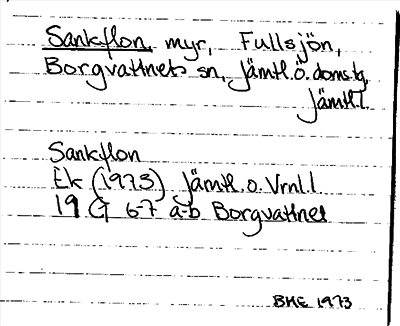 Sankflon, myr, Fullsjön,
Borgvattnets sn, Jämtl.Ö.doms.tg,
Jämtl.l.
Sankflon
Ek (1973) Jämtl. o. Vrnl.l
19 G 6-7 a-b Borgvattnet
BME 1973